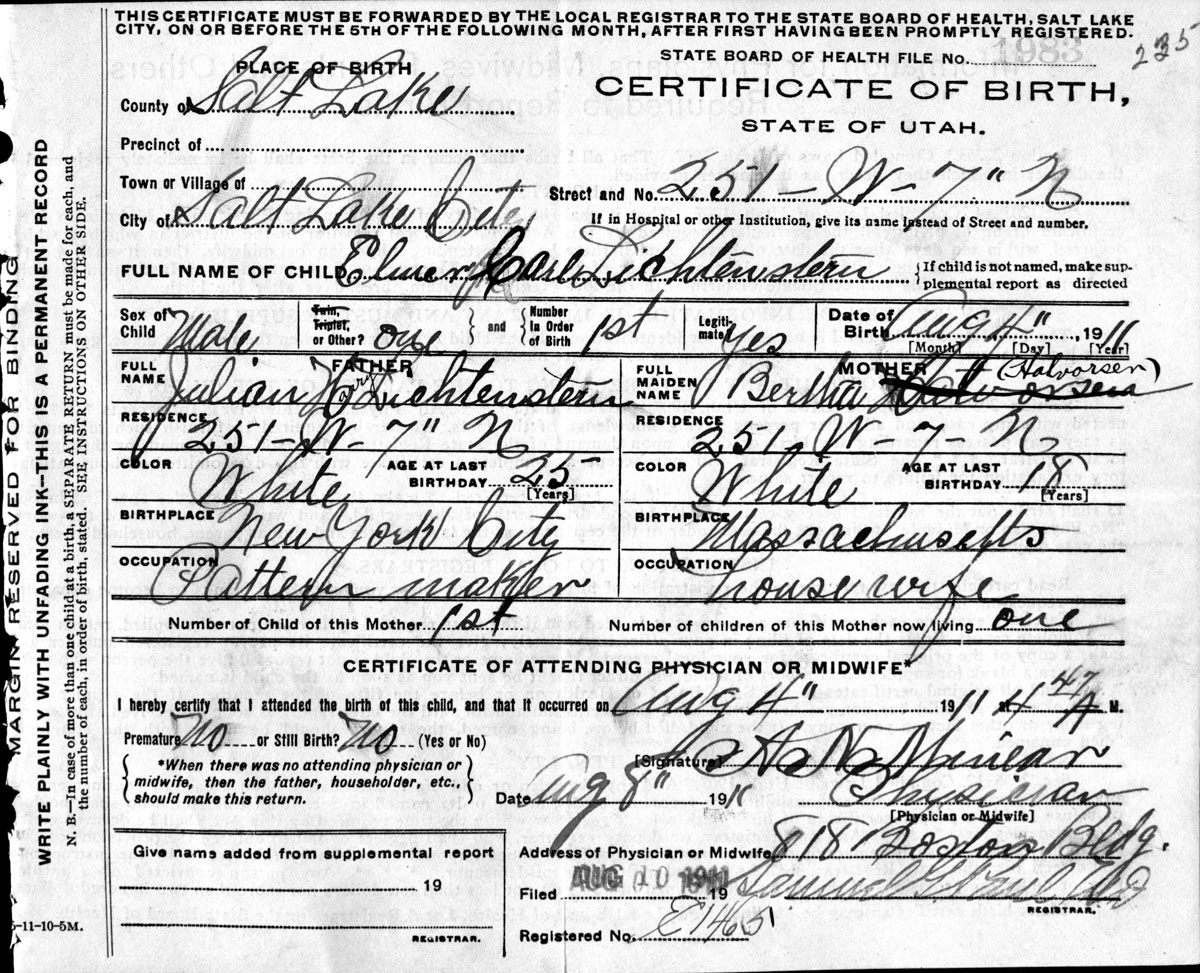 THIS CERTIFICATE MUST BE FORWARDED BY THE LOCAL REGISTRAR TO THE STATE BOARD OF HEALTH, SALT LAKE
CITY, ON OR BEFORE THE 5TH OF THE FOLLOWING MONTH, AFTER FIRST HAVING BEEN PROMPTLY REGISTERED.
235
STATE BOARD OF HEALTH FILE No. 1983
PLACE OF BIRTH
CERTIFICATE OF BIRTH,
County of Salt Lake
STATE OF UTAH.
Precinct of
Town or Village of
Street and No. 251 - W - 7" N
City of Salt Lake City
If in Hospital or other Institution, give its name instead of Street and number.
FULL NAME OF CHILD Elmer Carl Lichtenstern
{If child is not named, make sup-
plemental report as directed
Sex of Child Male
Twin, Triplet, or Other? one } and { Number In Order of Birth 1st
Legiti-mate? Yes
Date of Birth Aug 4" 1911
[Month] [Day] [Year]
FATHER
MOTHER
FULL NAME Julian Harry Lichtenstern
FULL MAIDEN NAME Bertha (Halvorsen)
RESIDENCE 251 - W - 7" N
RESIDENCE 251 W - 7 - N
COLOR White AGE AT LAST BIRTHDAY 25 [Years]
COLOR White AGE AT LAST BIRTHDAY 18 [Years]
BIRTHPLACE New York City
BIRTHPLACE Massachusetts
OCCUPATION Pattern maker
OCCUPATION housewife
Number of Child of this Mother 1st
Number of children of this Mother now living one
CERTIFICATE OF ATTENDING PHYSICIAN OR MIDWIFE*
I hereby certify that I attended the birth of this child, and that it occurred on Aug 4" 1911 at M.
Premature? No or Still Birth? No (Yes or No)
{ *When there was no attending physician or
midwife, then the father, householder, etc.,
should make this return. }
[Signature]
Date Aug 8" 1911 Physician
[Physician or Midwife]
Give name added from supplemental report
19
REGISTRAR.
Address of Physician or Midwife 818 Boston Bldg.
Filed AUG 10 1911 19
REGISTRAR.
Registered No. E1465
5-11-10-5M.
MARGIN RESERVED FOR BINDING
WRITE PLAINLY WITH UNFADING INK—THIS IS A PERMANENT RECORD
N. B.—In case of more than one child at a birth, a SEPARATE RETURN must be made for each, and
the number of each, in order of birth, stated. SEE INSTRUCTIONS ON OTHER SIDE.